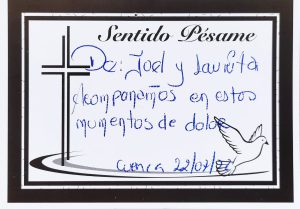 Sentido Pésame
De: Joel y Laurita
Acompañamos en estos
momentos de dolor
Cuenca 22/07/22